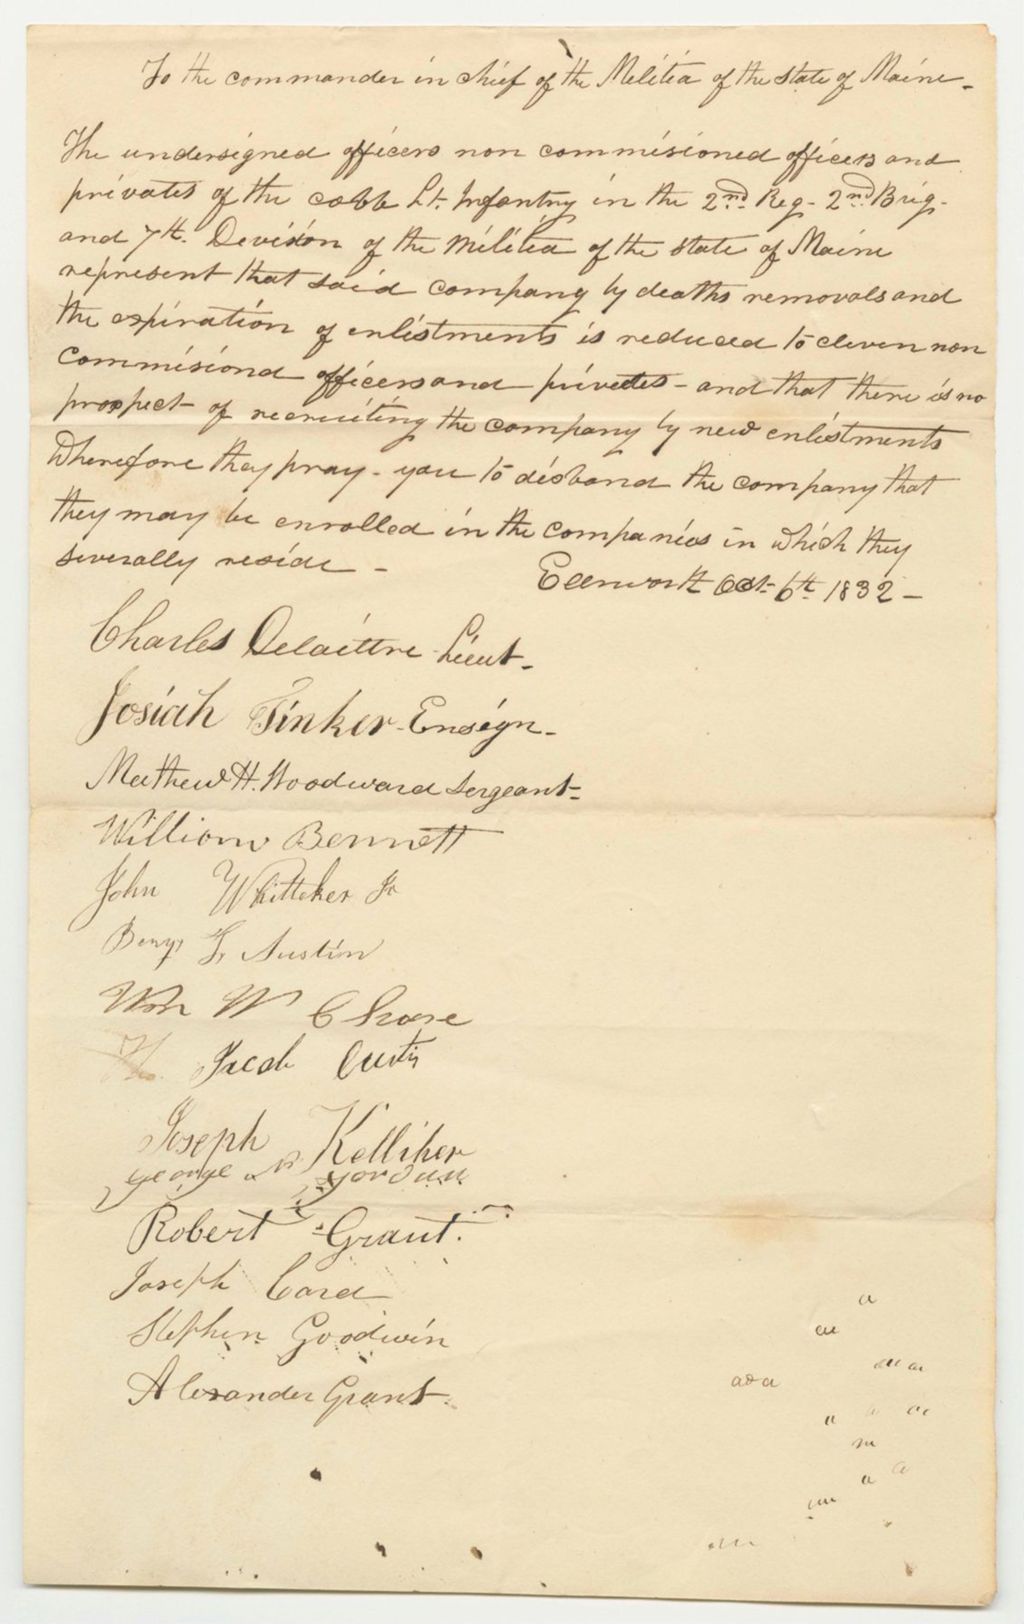 To the commander in chief of the Melitia of the state of Maine -
The undersigned officers non commisioned officers and
privates of the cobb Lt. Infantry in the 2nd. Reg - 2nd. Brig -
and 7th. Devision of the Militia of the state of Maine
represent that said company by deaths removals and
the expiration of enlistments is reduced to eleven non
commisiond officers and privates - and that there is no
prospect of recruiting the company by new enlistments
Wherefore they pray - you to disband the company that
they may be enrolled in the companies in which they
severally reside -
Ellsworth Oct - 6th. 1832 -
Charles Delaittre Lieut -
Josiah Tinker - Ensign -
Mathew H. Woodward Sergeant -
William Bennett
John Whitteker Jr
Benj. Austin
Wm W Chase
Jacob Curtis
Joseph Kelliher
George Jordan
Robert Grant.
Joseph Card
Stephen Goodwin
Alexander Grant -